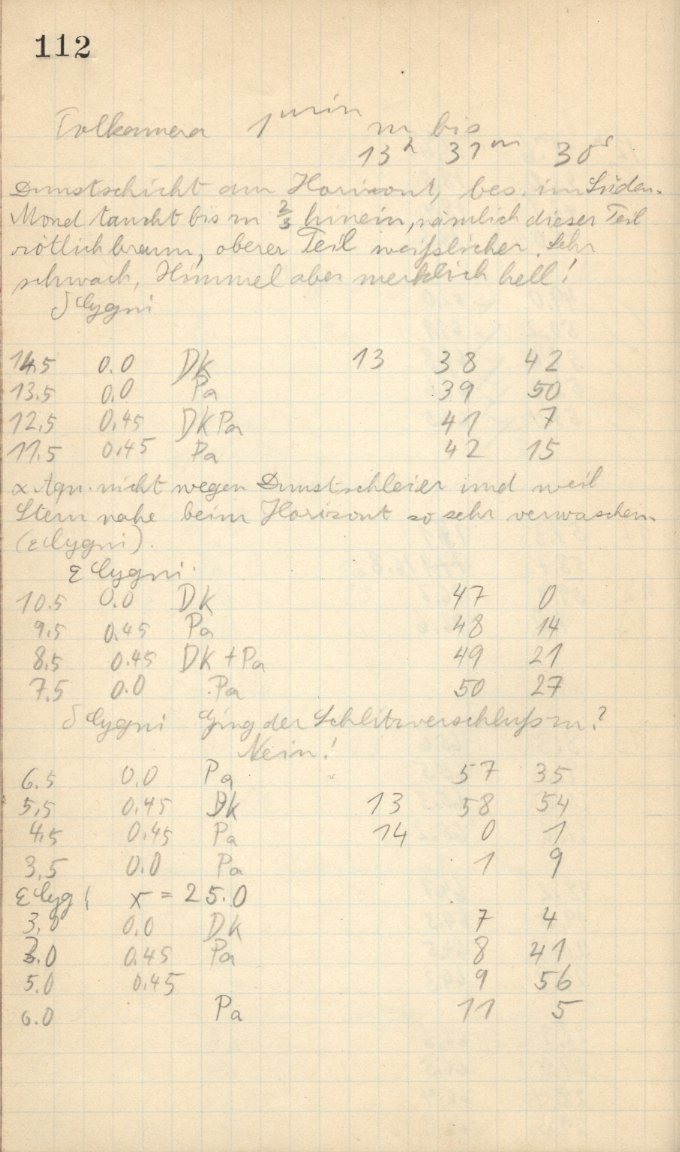 112
1 min m bis
13 h 37 m 30 s
Dunstschicht am Horizont, bes. im Süden.
Mond taucht bis zu 2/3 hinein, nämlich dieser Teil
rötlichbraun, oberer Teil weißlicher. Sehr
schwach, Himmel aber merklich hell!
δ Cygni
14.5 0.0 DK 13 38 42
13.5 0.0 Pa 39 50
12.5 0.45 DKPa 41 7
11.5 0.45 Pa 42 15
α Aqu. nicht wegen Dunstschleier und weil
Stern nahe beim Horizont so sehr verwaschen.
(ε Cygni).
ε Cygni.
10.5 0.0 DK 47 0
9.5 0.45 Pa 48 14
8.5 0.45 DK + Pa 49 21
7.5 0.0 Pa 50 27
δ Cygni Ging der Schlitzverschluß zu?
Nein!
6.5 0.0 Pa 57 35
5.5 0.45 DK 13 58 54
4.5 0.45 Pa 14 0 1
3.5 0.0 Pa 1 9
ε Cyg x = 25.0
3.0 0.0 DK 7 4
0.45 Pa 8 41
5.0 0.45 9 56
6.0 Pa 11 5